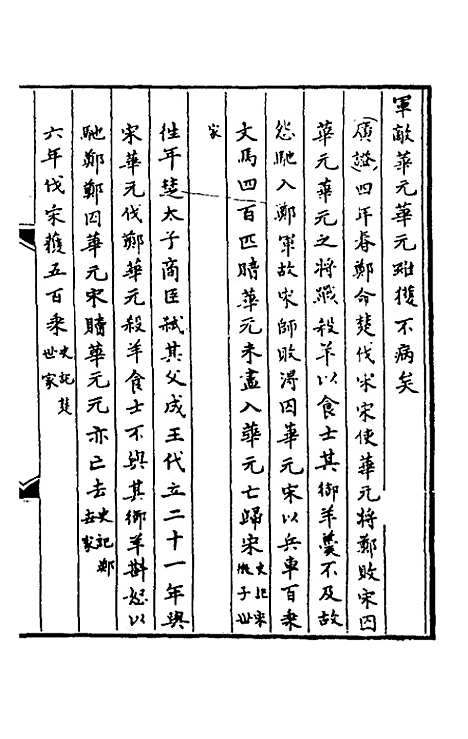 軍敵華元華元雖獲不病矣
（廣證）四年春鄭命楚伐宋宋使華元將鄭敗宋囚
華元華元之將戰殺羊以食士其御羊羹不及故
怨馳入鄭軍故宋師敗得囚華元宋以兵車百乘
文馬四百匹贖華元未盡入華元亡歸宋史記宋微子世
家
往年楚太子商臣弒其父成王代立二十一年與
宋華元伐鄭華元殺羊食士不與其御羊斟怒以
馳鄭鄭囚華元宋贖華元元亦亡去史記鄭世家
六年伐宋獲五百乘史記楚世家